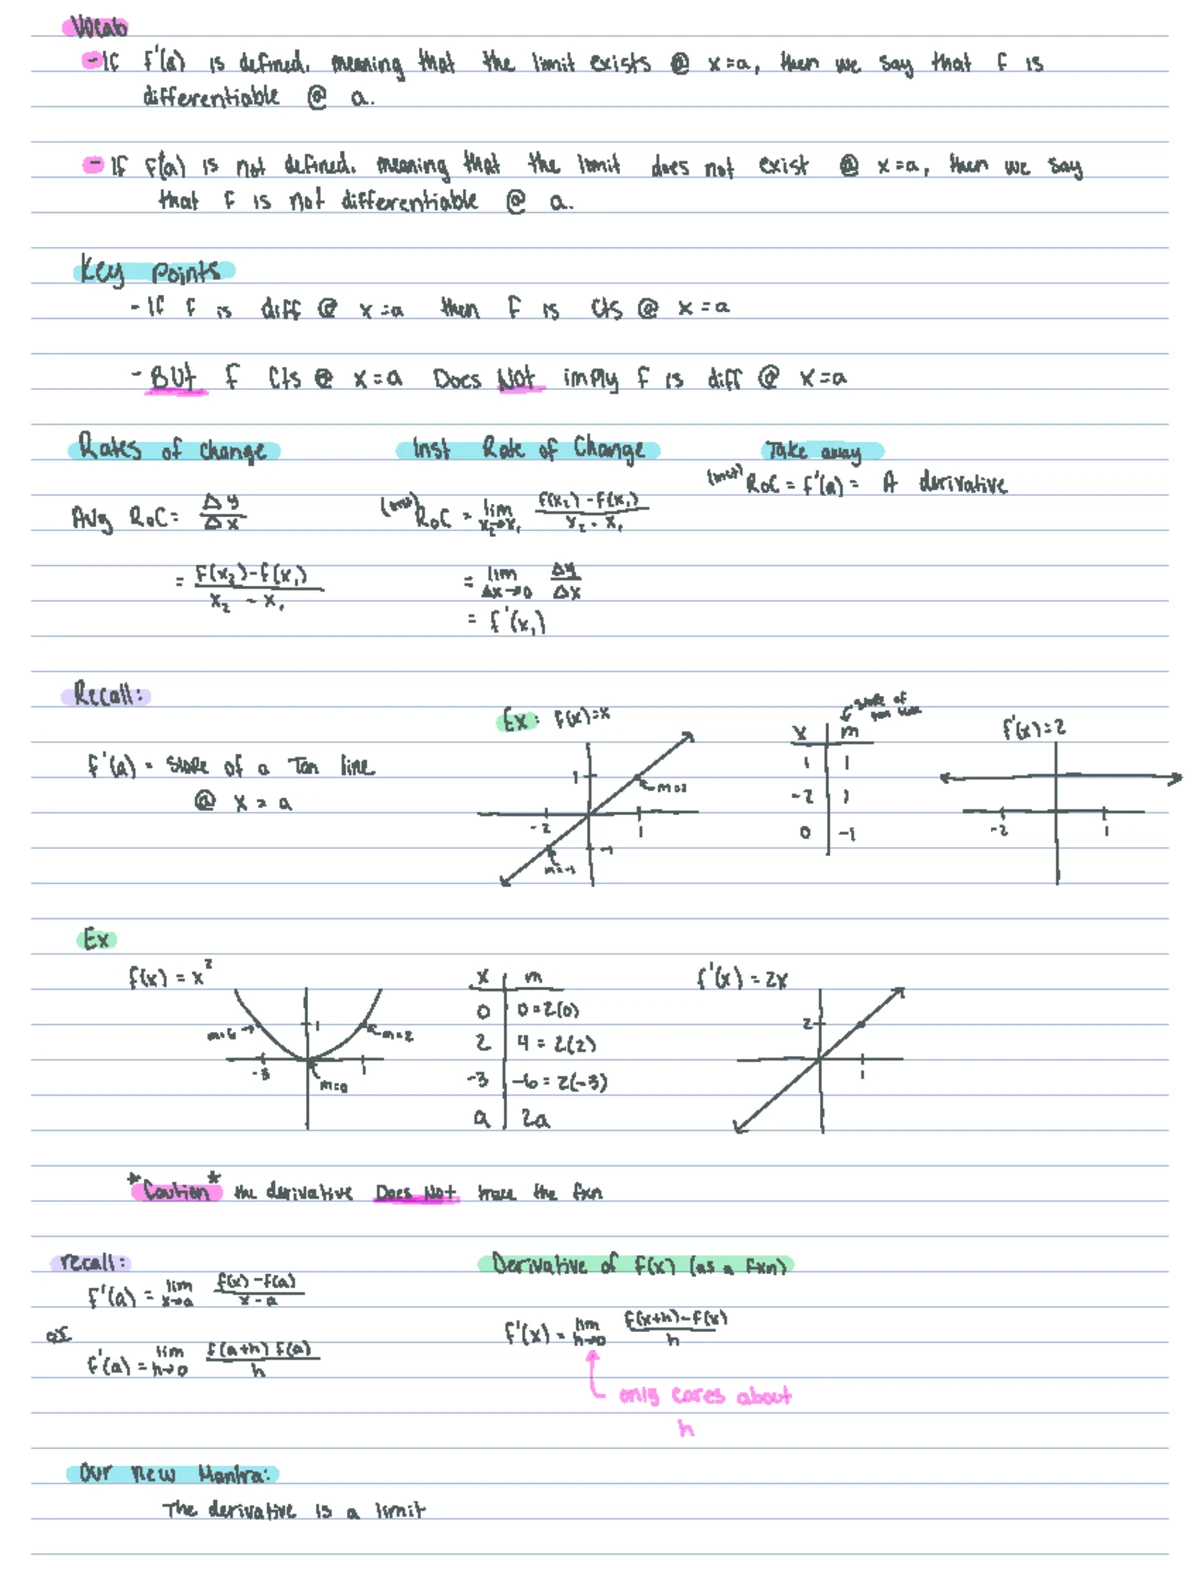 Vocab
- If f'(a) is defined, meaning that the limit exists @ x=a, then we say that f is
differentiable @ a.
- If f'(a) is not defined, meaning that the limit does not exist @ x=a, then we say
that f is not differentiable @ a.
Key points
- If f is diff @ x=a then f is cts @ x=a
- BUT f cts @ x=a Does Not imply f is diff @ x=a
Rates of change Inst Rate of Change Take away
(inst) RoC = f'(a) = A derivative
Avg RoC = Δy/Δx (inst) RoC = lim x₂→x₁ f(x₂)-f(x₁)/x₂-x₁
= f(x₂)-f(x₁)/x₂-x₁ = lim Δx→0 Δy/Δx
= f'(x₁)
Recall:
f'(a) = slope of a Tan line
@ x = a
Ex: f(x)=x
1
-2 1
-1
slope of
tan line
x m
1 1
-2 1
0 -1
f'(x)=2
-2 1
Ex
f(x) = x²
1 m=2
-3 1
m=0
x m
0 0=2(0)
2 4=2(2)
-3 -6=2(-3)
a 2a
f'(x) = 2x
2
1
*Caution* the derivative Does Not trace the fxn
recall:
f'(a) = lim x→a f(x)-f(a)/x-a
or
f'(a) = lim h→0 f(a+h) f(a)/h
Derivative of f(x) (as a fxn)
f'(x) = lim h→0 f(x+h)-f(x)/h
only cares about
h
Our new Mantra:
The derivative is a limit